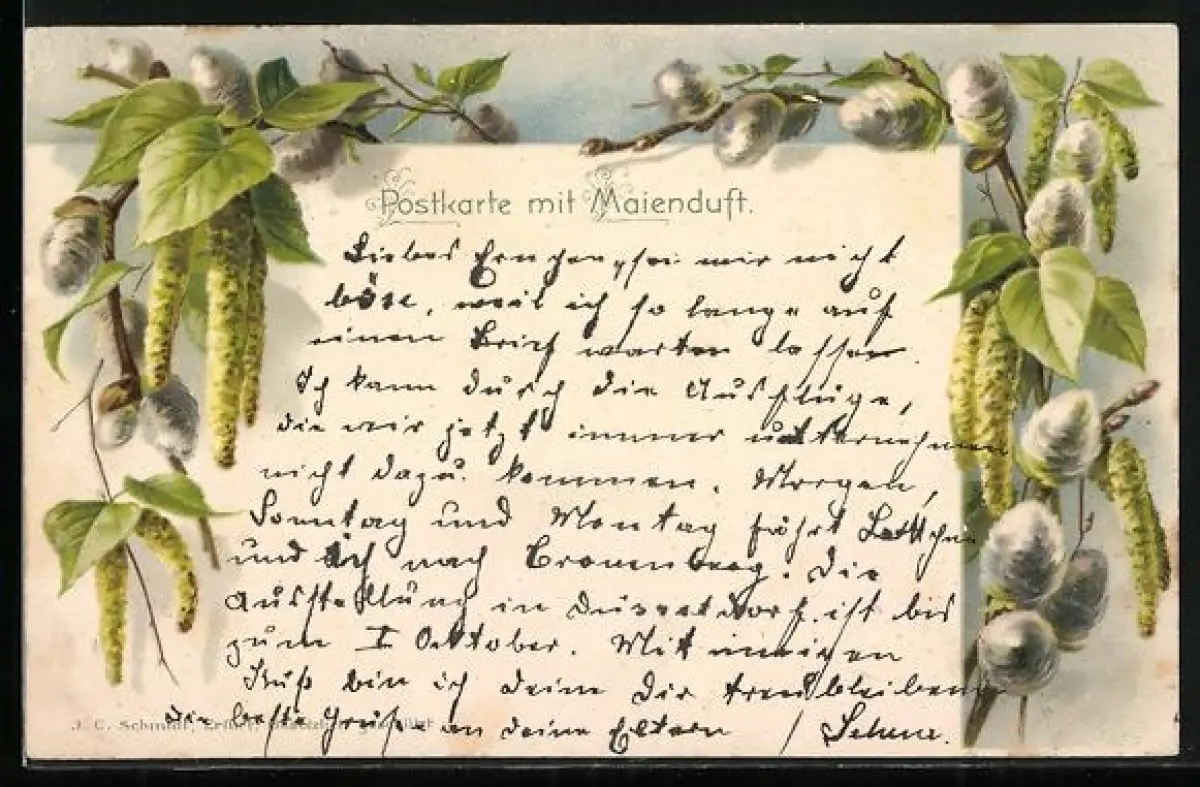 Postkarte mit Maienduft.
Liebes sei mir nicht
böse, weil ich so lange auf
einen Brief warten lasse.
Ich kann durch die Ausflüge,
die wir jetzt immer unternehmen
nicht dazu kommen. Morgen,
Sonntag und Montag fährt Lottchen
und ich nach Cronenberg. Die
Ausstellung in Düsseldorf ist bis
zum I Oktober. Mit innigen
Kuß bin ich deine Dir treubleibende
die beste Grüße an deine Eltern /
J. C. Schmidt, Erfurt,